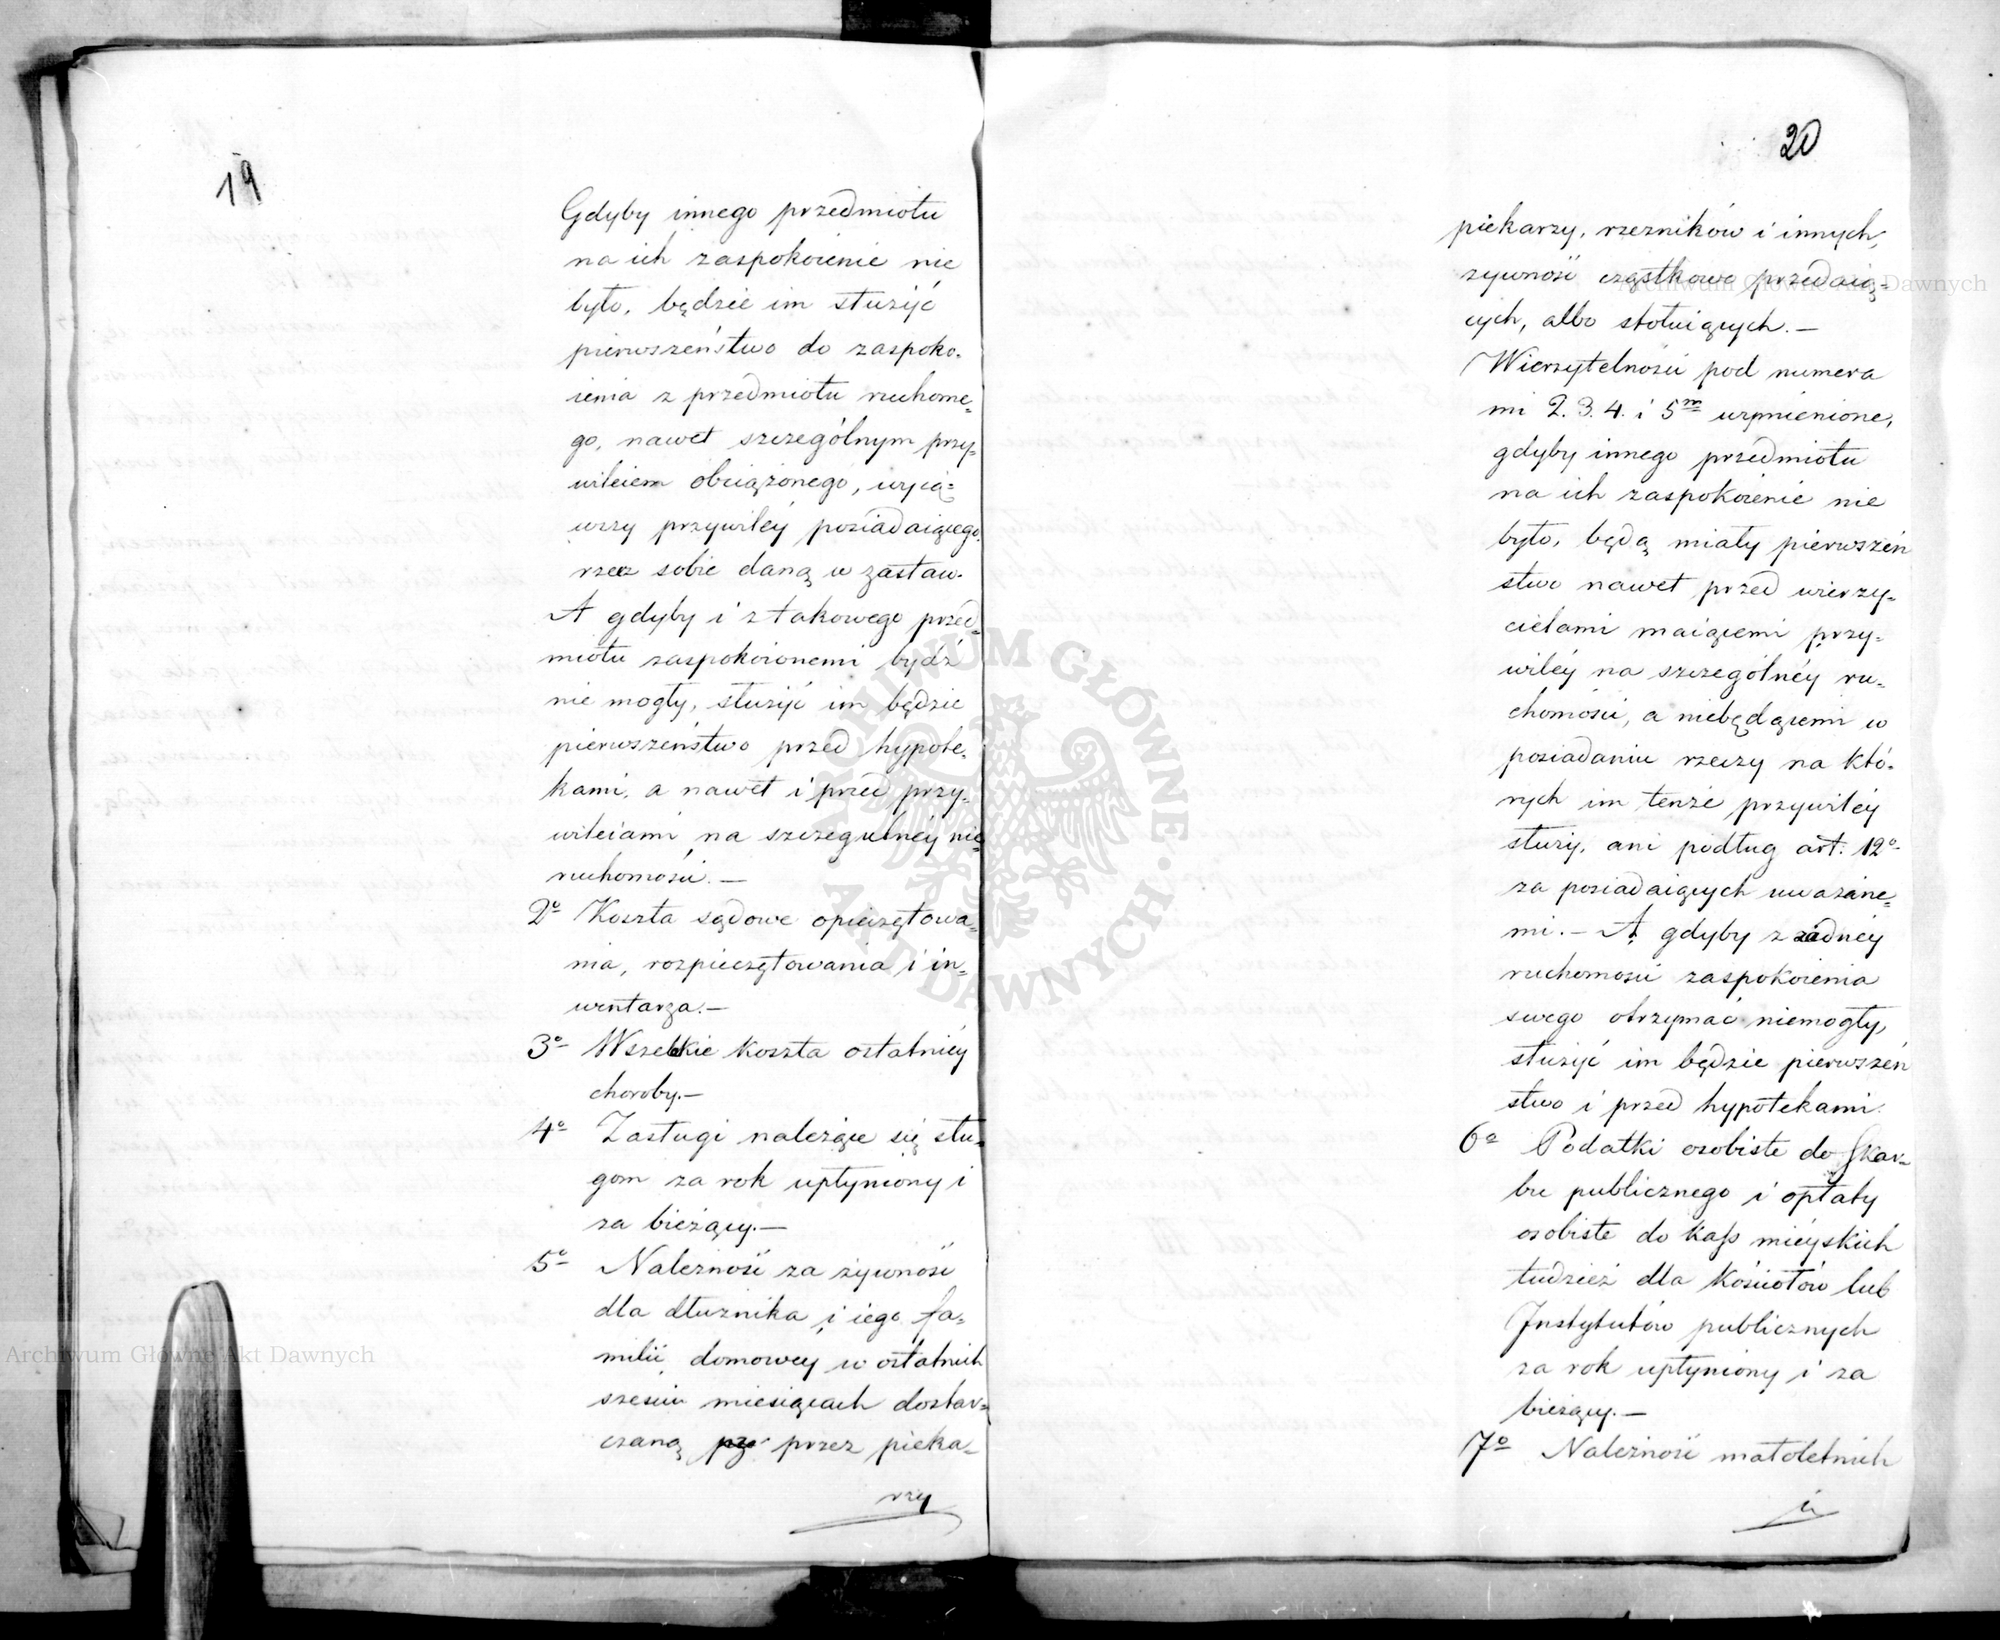 19
Gdyby innego przedmiotu
na ich zaspokoienie nie
było, będzie im służyć
pierwszeństwo do zaspoko-
ienia z przedmiotu ruchome-
go, nawet szczególnym przy-
wileiem obciążonego, wyią-
wszy przywiléy posiadaiącego
rzecz sobie daną w zastaw.
A gdyby i z takowego przed-
miotu zaspokoionemi bydź
nie mogły, służyć im będzie
pierwszeństwo przed hypote-
kami, a nawet i przed przy-
wileiami na szczegulnéy nie-
ruchomości. —
2o Koszta sądowe opieczętowa-
nia, rozpieczętowania i in-
wentarza. —
3o Wszelkie koszta ostatniéy
choroby. —
4o Zasługi należące się słu-
gom za rok upłyniony i
za bieżący. —
5o Należność za żywność
dla dłużnika i iego fa-
milii domowey w ostatnich
sześciu miesiącach dostar-
czaną przez pieka-
rzy
20
piekarzy, rzezników i innych,
żywność cząstkowo przedaią-
cych, albo stołuiących. —
Wierzytelności pod numera
mi 2. 3. 4. i 5m wymienione,
gdyby innego przedmiotu
na ich zaspokoienie nie
było, będą miały pierwszeń
stwo nawet przed wierzy-
cielami maiącemi przy-
wiléy na szczególnéy ru-
chomości, a niebędącemi w
posiadaniu rzeczy na któ-
rych im tenże przywiléy
służy, ani podług art. 12o
za posiadaiących uważane-
mi. — A gdyby z żadnéy
ruchomości zaspokoienia
swego otrzymać niemogły,
służyć im będzie pierwszeń
stwo i przed hypotekami.
6o Podatki osobiste do Skar-
bu publicznego i opłaty
osobiste do kass mieyskich
tudzież dla Kościołów lub
Instytutów publicznych
za rok upłyniony i za
bieżący. —
7o Należność małoletnich
i
Archiwum Główne Akt Dawnych
Archiwum Główne Akt Dawnych
ARCHIWUM GŁÓWNE AKT DAWNYCH